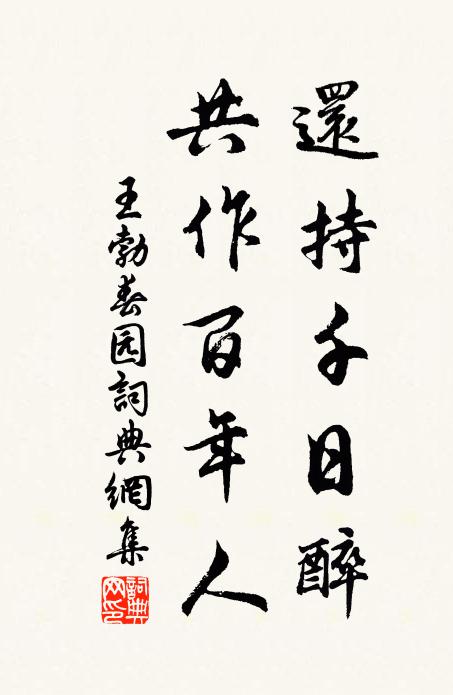 還持千日醉
共作百年人
王勃春园詞典網集
詞典網印